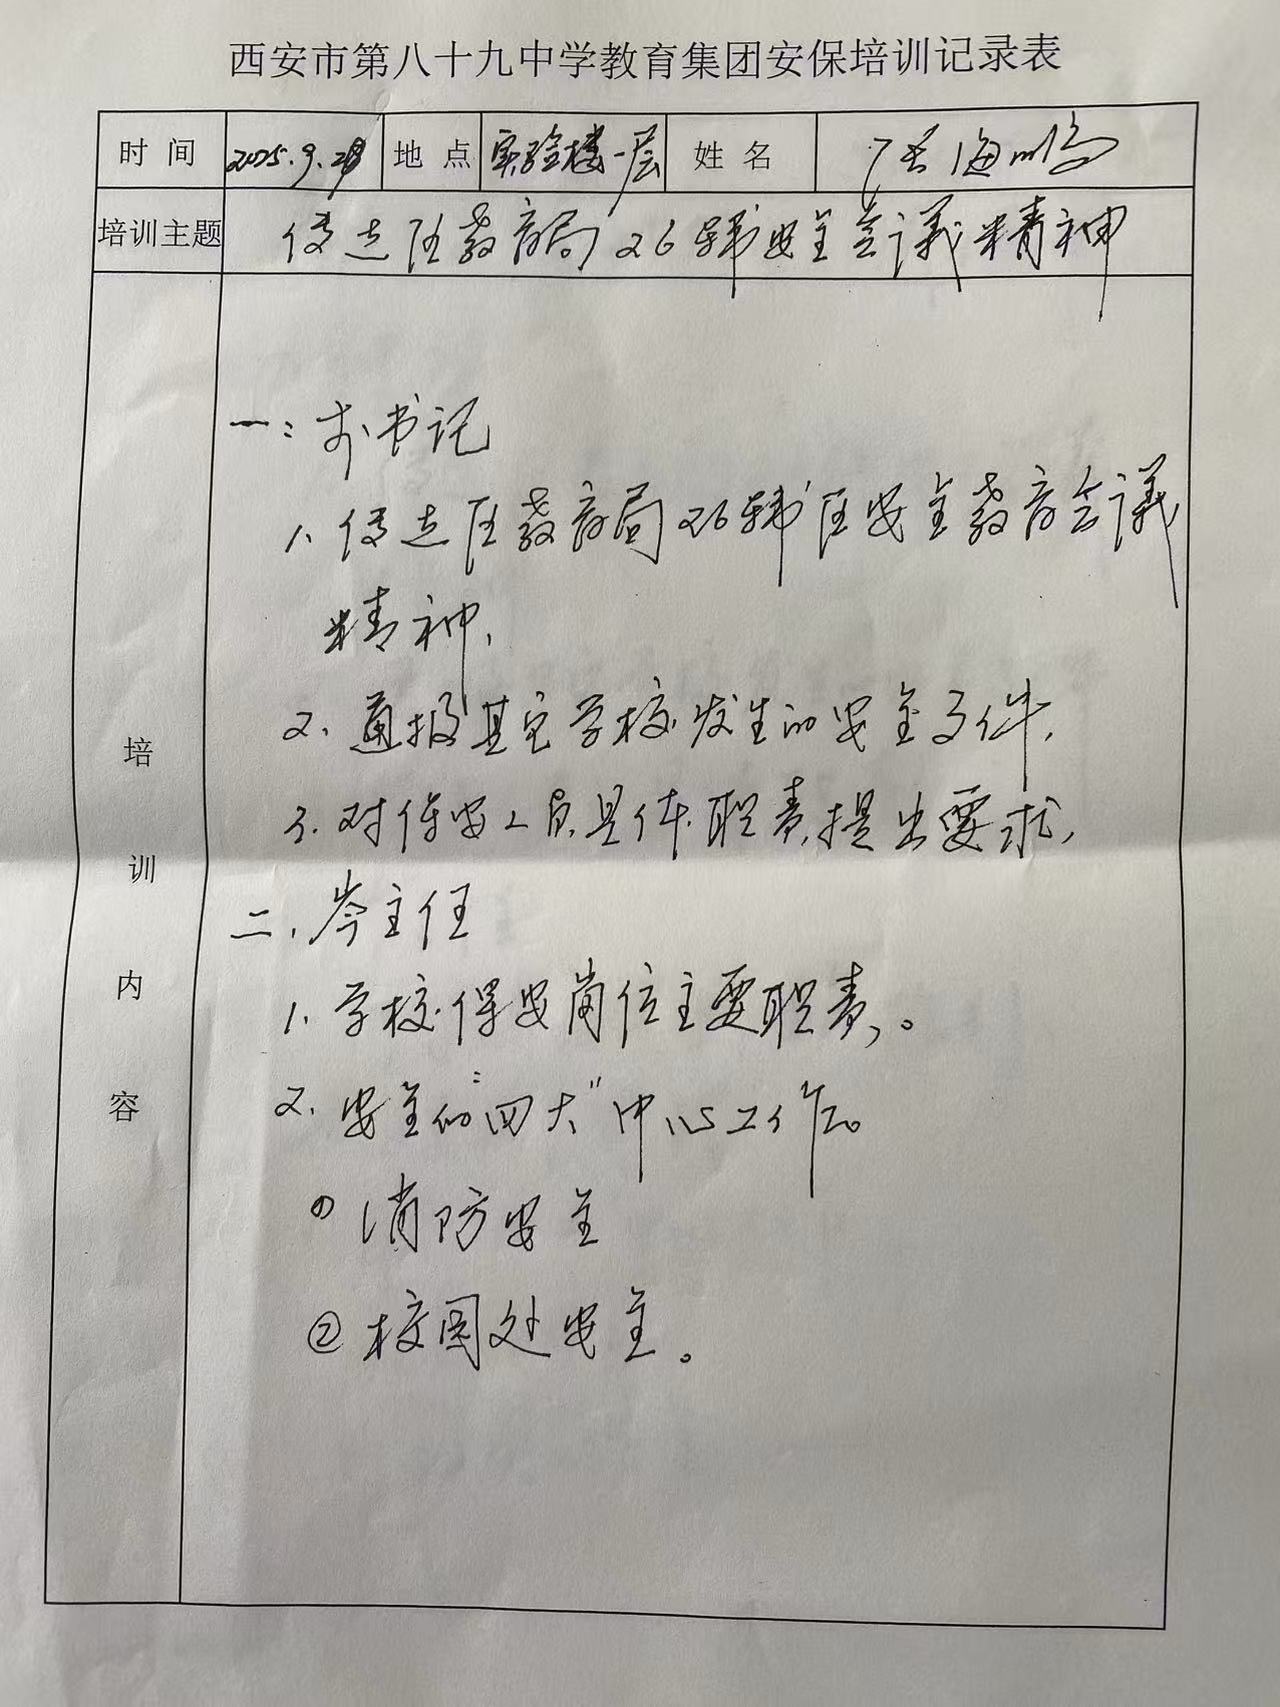 西安市第八十九中学教育集团安保培训记录表
时间 2025.9. 地点 实验楼一层 姓名 海
培训主题 传达区教育局26号安全会议精神
培训内容
一: 书记
1. 传达区教育局26号区安全教育会议
精神,
2. 通报其它学校发生的安全事件,
3. 对保安人员具体职责提出要求,
二、岑主任
1. 学校保安岗位主要职责。
2. 安全的“四大”中心工作。
① 消防安全
② 校园处安全。